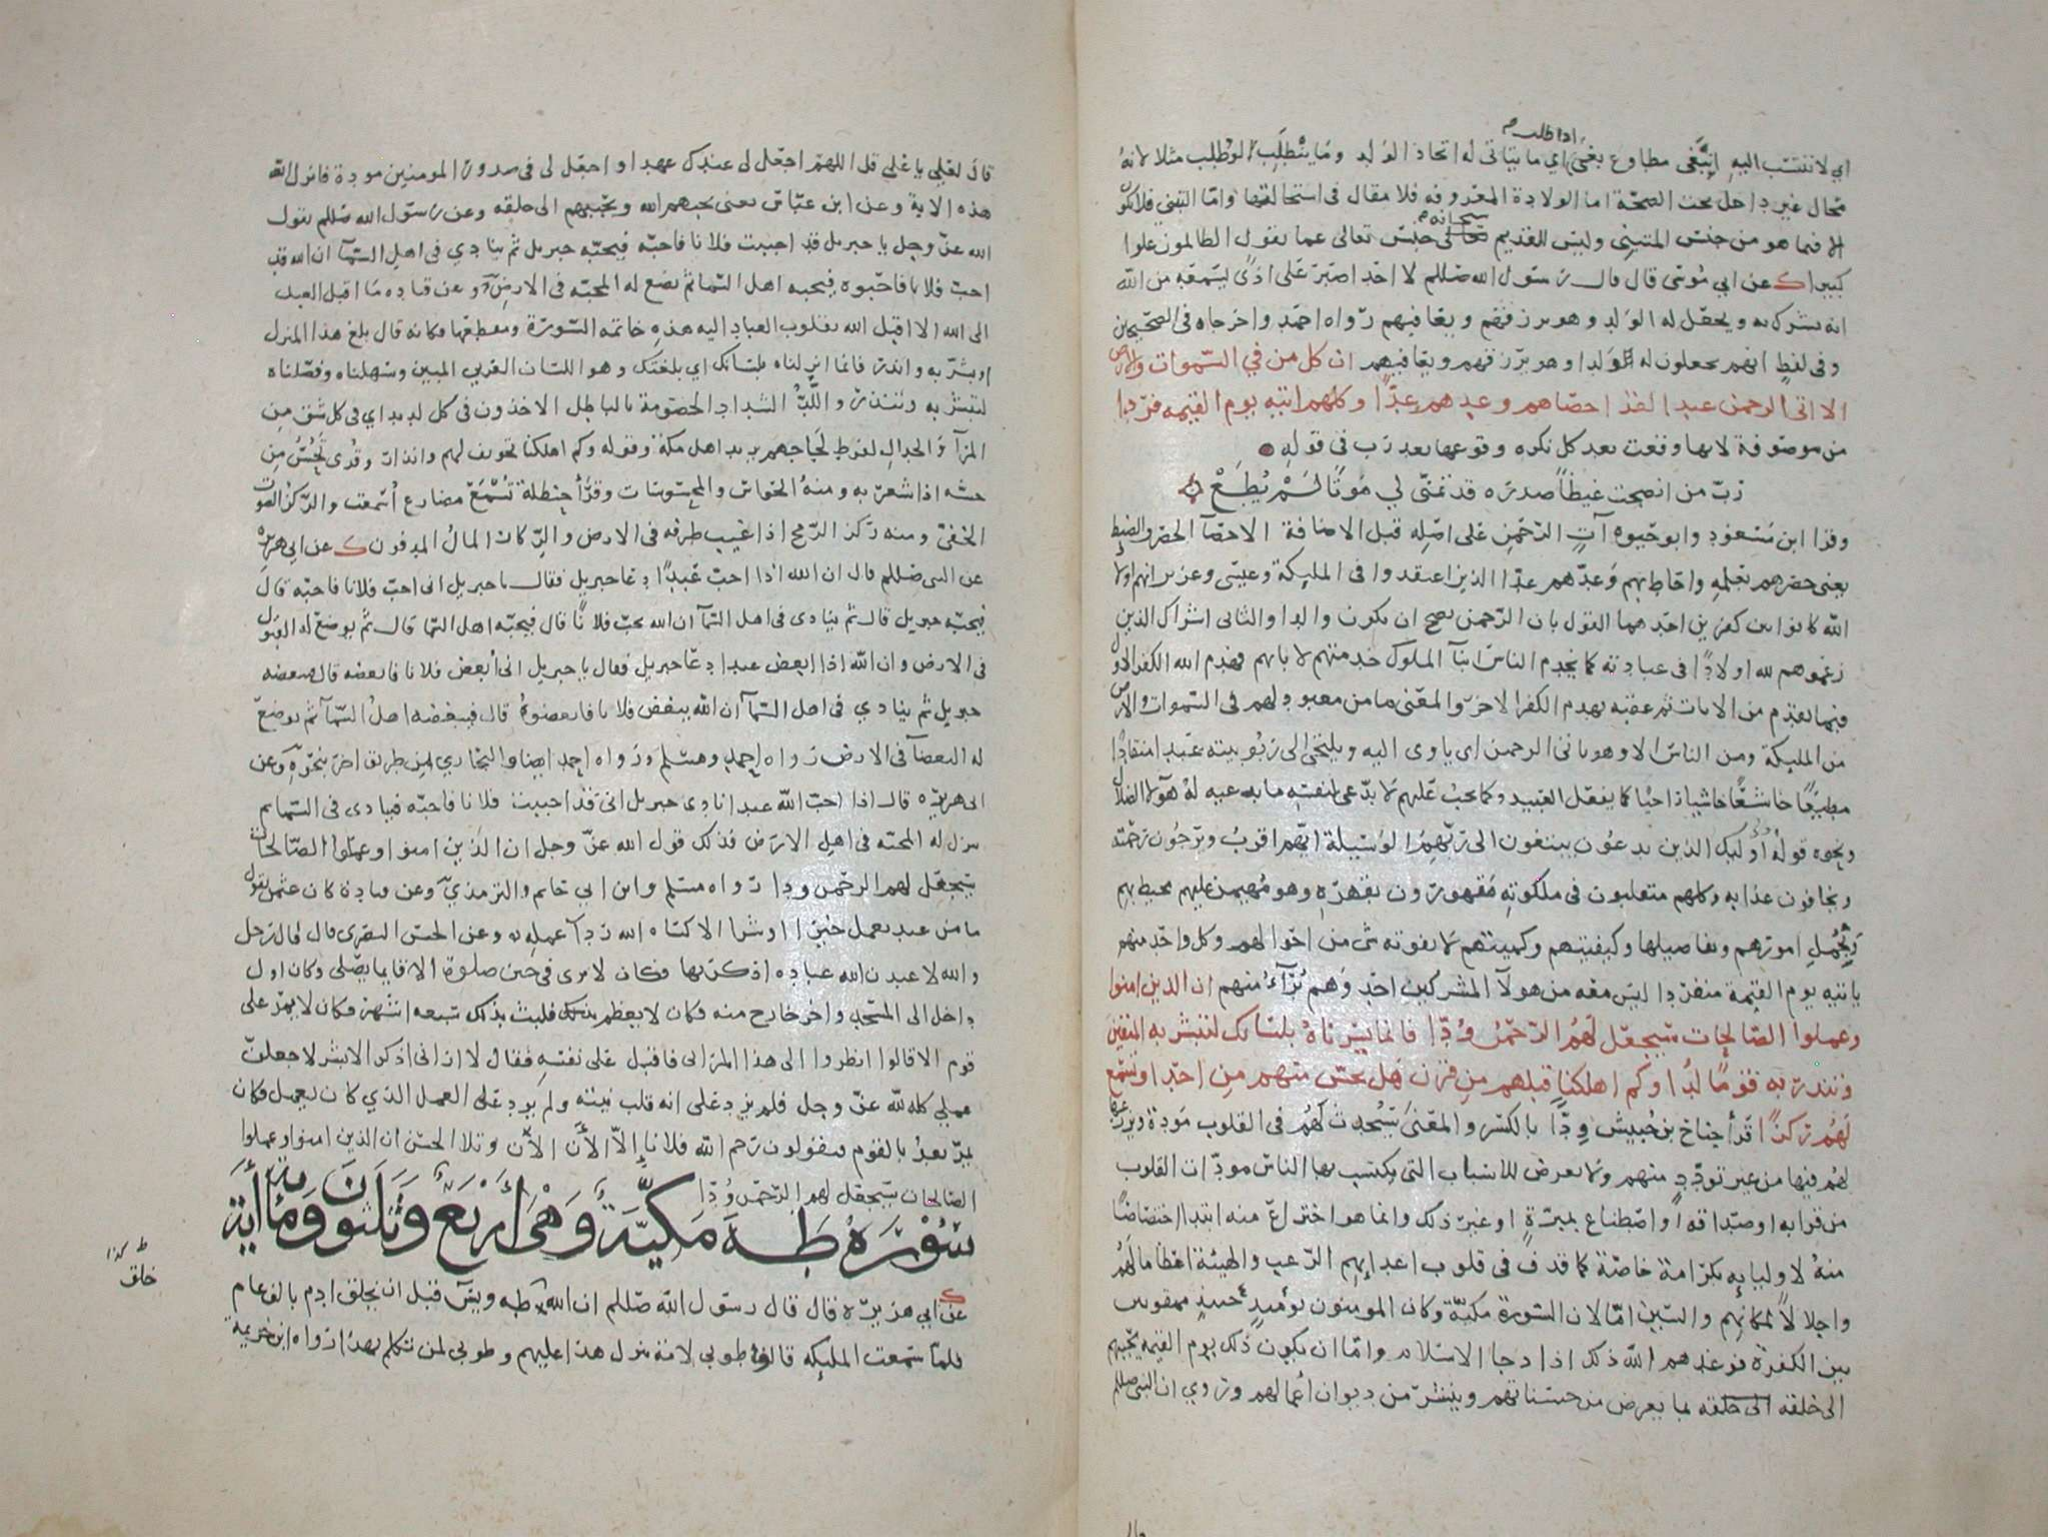 اذا طلب م
اي لا تنتسب اليه انبغى مطاوع بغى اي ما يتاتى له اتخاذ الولد وما ينطلب لو طلب مثلا لانه
محال غير داخل تحت الصحة اما الولادة المعروفه فلا مقال في استحالتها واما التبني فلا يكون
الا فيما هو من جنس المتبني وليس للقديم سبحانه جنس تعالى عما يقول الظالمون علوا
كبيرا ك عن ابي موسى قال قال رسول الله صللم لا احد اصبر على اذى يسمعه من الله
انه يشرك به ويجعل له الولد وهو يرزقهم ويعافيهم رواه احمد واخرجاه في الصحيحين
وفي لفظ انهم يجعلون له ولدا وهو يرزقهم ويعافيهم ان كل من في السموات والارض
الا اتى الرحمن عبدا لقد احصاهم وعدهم عدا وكلهم اتيه يوم القيمه فردا
من موصوفة لانها وقعت بعد كل نكره وقوعها بعد رب في قوله
رب من انضجت غيظا صدره قد تمنى لي موتا لم يطع
وقرا ابن مسعود وابو حيوه آت الرحمن على اصله قبل الاضافة الاحصآ الحصر والضبط
يعنى حصرهم بعلمه واحاط بهم وعدهم عدا الذين اعتقدوا في المليكة وعيسى وعزير انهم اولاد
الله كانوا بين كفرين احدهما القول بان الرحمن يصح ان يكون والدا والثاني اشراك الذين
زعموهم لله اولادا في عبادته كما يخدم الناس ابنآ الملوك خدمتهم لابائهم فهدم الله الكفر الاول
فيما تقدم من الايات ثم عقبه بهدم الكفر الاخر والمعنى ما من معبود لهم في السموات والارض
من المليكة ومن الناس الا وهو ياتى الرحمن اى ياوى اليه ويلتجى الى ربوبيته عبدا منقادا
مطيعا خاشعا خاشيا راجيا كما يفعل العبيد وكما يجب عليهم لا يدعى لنفسه ما يدعيه له هولآ الضلال
ونحوه قوله اوليك الذين يدعون يبتغون الى ربهم الوسيلة ايهم اقرب ويرجون رحمته
ويخافون عذابه وكلهم متقلبون في ملكوته مقهورون بقهره وهو مهيمن عليهم محيط بهم
وبجمل امورهم وتفاصيلها وكيفيتهم وكميتهم لا يفوته شى من احوالهم وكل واحد منهم
ياتيه يوم القيمة منفردا ليس معه من هولآ المشركين احد وهم برآء منهم ان الذين امنوا
وعملوا الصالحات سيجعل لهم الرحمن ودا فانما يسرناه بلسانك لتبشر به المتقين
وتنذر به قوما لدا وكم اهلكنا قبلهم من قرن هل تحس منهم من احد او تسمع
لهم ركزا قرأ جناح بن حبيش ودا بالكسر والمعنى سيحدث لهم في القلوب مودة ويزرعها
لهم فيها من غير تودد منهم ولا تعرض للاسباب التى يكتسب بها الناس مودات القلوب
من قرابه او صداقه او اصطناع بمبرة او غير ذلك وانما هو اختراع منه ابتدا اختصاصا
منه لاوليايه بكرامة خاصة كما قذف في قلوب اعدايهم الرعب والهيبة اعظاما لهم
واجلالا لمكانهم والسين اما لان السورة مكية وكان المومنون يومئذ ممقوتين
بين الكفرة فوعدهم الله ذلك اذا دجا الاسلام واما ان يكون ذلك يوم القيمه يحببهم
الى خلقه الى خلقه بما يعرض من حسناتهم وينشر من ديوان اعمالهم وروي ان النبى صللم
قال لعلي يا علي قل اللهم اجعل لى عندك عهدا واجعل لى في صدور المومنين مودة فانزل الله
هذه الاية وعن ابن عباس يعنى يحبهم الله ويحببهم الى خلقه وعن رسول الله صللم يقول
الله عز وجل يا جبريل قد احببت فلانا فاحبه فيحبه جبريل ثم ينادي في اهل السمآ ان الله قد
احب فلانا فاحبوه فيحبه اهل السما ثم يضع له المحبه في الارض وعن قتاده ما اقبل العبد
الى الله الا اقبل الله بقلوب العباد اليه هذه خاتمه السورة ومقطعها فكانه قال بلغ هذا المنزل
او بشر به وانذر فانما انزلناه بلسانك اي بلغتك وهو اللسان العربي المبين وسهلناه وفصلناه
لتبشر به وتنذر واللد الشداد الخصومة بالباطل الاخذون في كل لديد اي في كل شق من
المرآ والجدال لفرط لجاجهم يريد اهل مكة وقوله وكم اهلكنا تخويف لهم وانذار وقرى تحس من
حسه اذا شعر به ومنه الحواس والمحسوسات وقرأ حنظلة تسمع مضارع أسمعت والركز الصوت
الخفى ومنه ركز الرمح اذا غيب طرفه في الارض والركاز المال المدفون ك عن ابي هريره
عن النبى صللم قال ان الله اذا احب عبدا دعا جبريل فقال يا جبريل انى احب فلانا فاحبه قال
فيحبه جبريل قال ثم ينادى في اهل السمآ ان الله يحب فلانا قال فيحبه اهل السما قال ثم يوضع له القبول
في الارض وان الله اذا ابغض عبدا دعا جبريل فقال يا جبريل انى أبغض فلانا فابغضه قال فيبغضه
جبريل ثم ينادي في اهل السمآ ان الله يبغض فلانا فابغضوة قال فيبغضه اهل السمآ ثم يوضع
له البغضآ في الارض رواه احمد ومسلم ورواه احمد ايضا والبخاري من طريق اخر بنحوه وعن
ابى هريره قال اذا احب الله عبدا نادى جبريل انى قد احببت فلانا فاحبه فينادى في السما ثم
ينزل له المحبه في اهل الارض فذلك قول الله عز وجل ان الذين امنوا وعملوا الصالحات
سيجعل لهم الرحمن ودا رواه مسلم وابن ابي حاتم والترمذي وعن قتادة كان عثمن يقول
ما من عبد يعمل خيرا او شرا الا كساه الله ردآ عمله وعن الحسن البصرى قال قال رجل
والله لاعبدن الله عباده اذكر بها فكان لا يرى في حين صلوة الا قايما يصلى وكان اول
داخل الى المسجد واخر خارج منه فكان لا يعظم فمكث بذلك سبعه اشهر وكان لا يمر على
قوم الا قالوا انظروا الى هذا المرائى فاقبل على نفسه فقال لا ارانى اذكر الا بشر لاجعلن
عملي كله لله عز وجل فلم يزد على انه قلب نيته ولم يزد على العمل الذي كان يعمل فكان
يمر بعد بالقوم فيقولون رحم الله فلانا الآن الآن وتلا الحسن ان الذين امنوا وعملوا
الصالحات سيجعل لهم الرحمن ودا
سورة طه مكية وهى اربع وثلثون ومائة أية
ك عن ابي هريرة قال قال رسول الله صللم ان الله طه ويس قبل ان يخلق ادم بالف عام
فلما سمعت المليكه قالوا طوبى لامة ينزل هذا عليهم وطوبى لمن تتكلم بهذا رواه ابن خزيمة
ط كذا
خلق